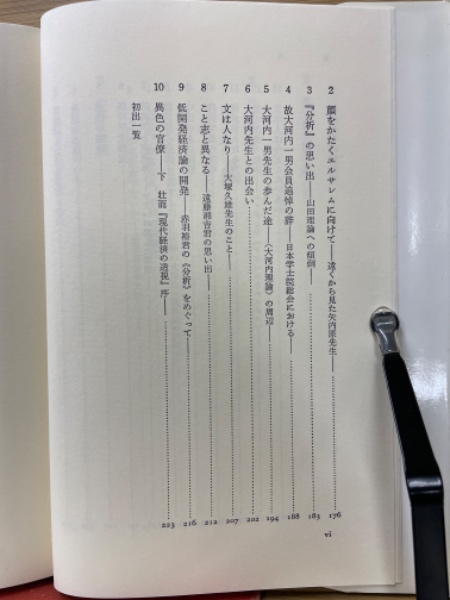 2 顔をかたくエルサレムに向けて――遠くから見た矢内原先生――……176
3 『分析』の思い出――山田理論への傾倒――……183
4 故大河内一男会員追悼の辞――日本学士院総会における――……188
5 大河内一男先生の歩んだ途――〈大河内理論〉の周辺――……194
6 大河内先生との出会い……202
7 文は人なり――大塚久雄先生のこと――……207
8 こと志と異なる――遠藤湘吉君の思い出――……212
9 低開発経済論の開発――赤羽裕君の《分析》をめぐって――……216
10 異色の官僚――下村 壮而『現代経済の透視』序――……223
初出一覧
vi